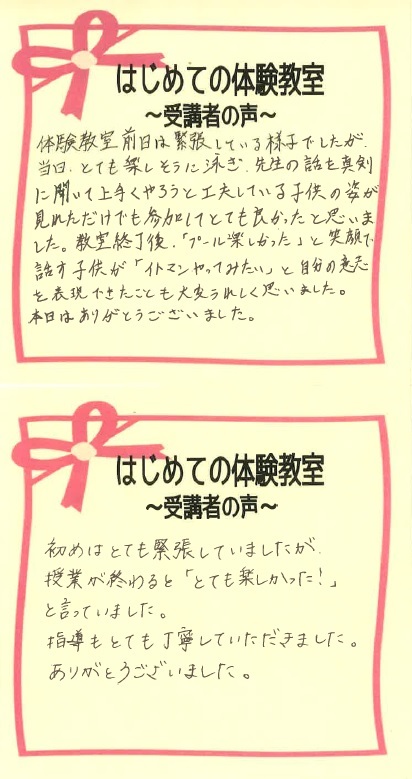 はじめての体験教室
～受講者の声～
体験教室前日は緊張している様子でしたが、
当日、とても楽しそうに泳ぎ、先生の話を真剣
に聞いて上手くやろうと工夫している子供の姿が
見れただけでも参加してとても良かったと思いま
した。教室終了後、「プール楽しかった」と笑顔で
話す子供が「イトマンやってみたい」と自分の意志
を表現できたことも大変うれしく思いました。
本日はありがとうございました。
はじめての体験教室
～受講者の声～
初めはとても緊張していましたが、
授業が終わると「とても楽しかった！」
と言っていました。
指導もとても丁寧していただきました。
ありがとうございました。